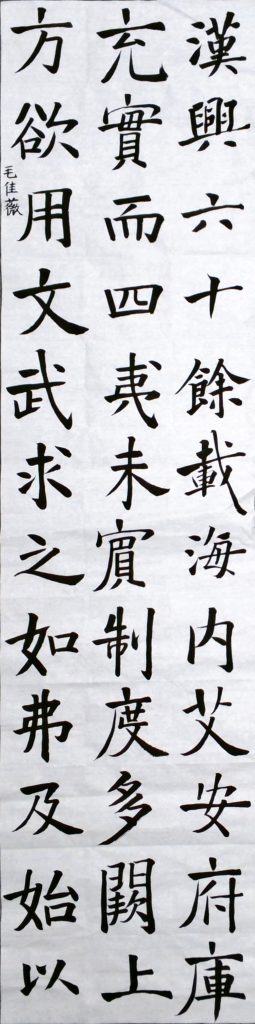 漢興六十餘載海内艾安府庫
充實而四夷未賓制度多闕上
方欲用文武求之如弗及始以
毛佳薇